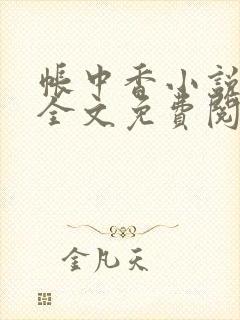 帐中香小说
全文免费阅
金凡天